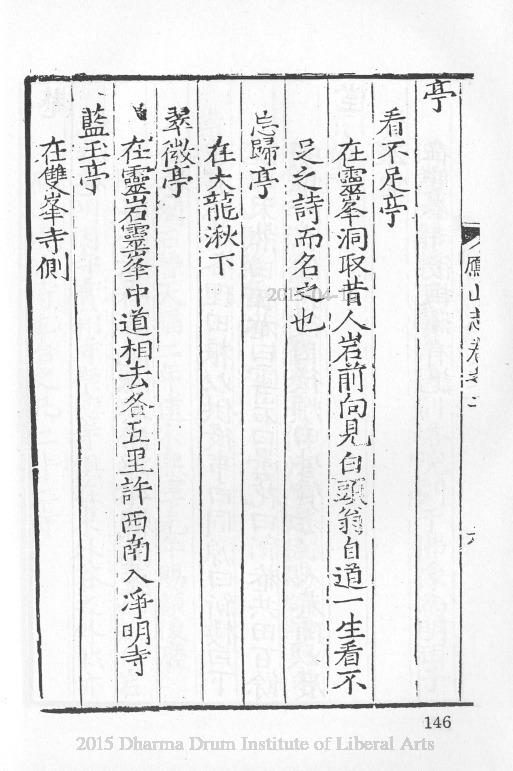 亭
看不足亭
在靈峯洞取昔人岩前向見白頭翁自道一生看不
足之詩而名之也
忘歸亭
在大龍湫下
翠微亭
在靈岩靈峯中道相去各五里許西南入凈明寺
藍玉亭
在雙峯寺側
鴈山志卷之二
六
146
2015-04-1
2015 Dharma Drum Institute of Liberal Arts